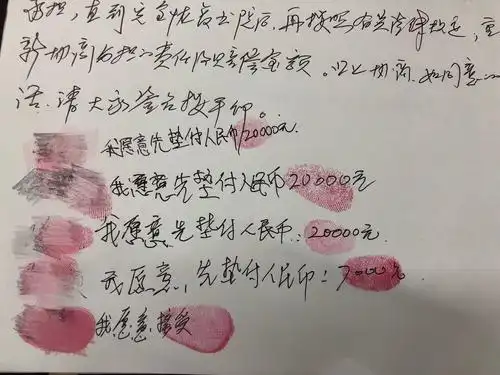 承担，直到完全恢复出院后，再按照有关法律规定，重
新协商承担的责任及赔偿金额。以上协商，如同意的
话，请大家签名按手印。
我愿意先垫付人民币20000元.
我愿意先垫付人民币20000元
我愿意先垫付人民币：20000元.
我愿意，先垫付人民币：7000元.
我愿意接受